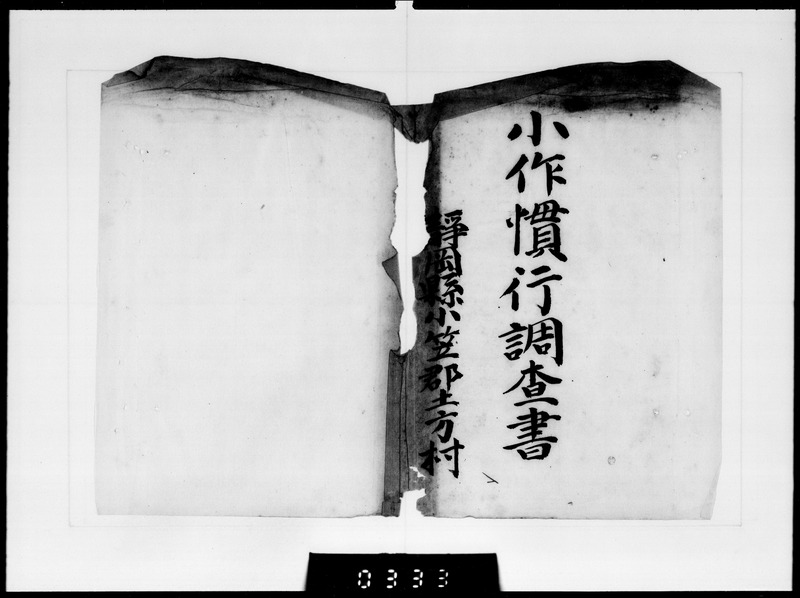 小作慣行調査書
静岡縣小笠郡土方村
0333